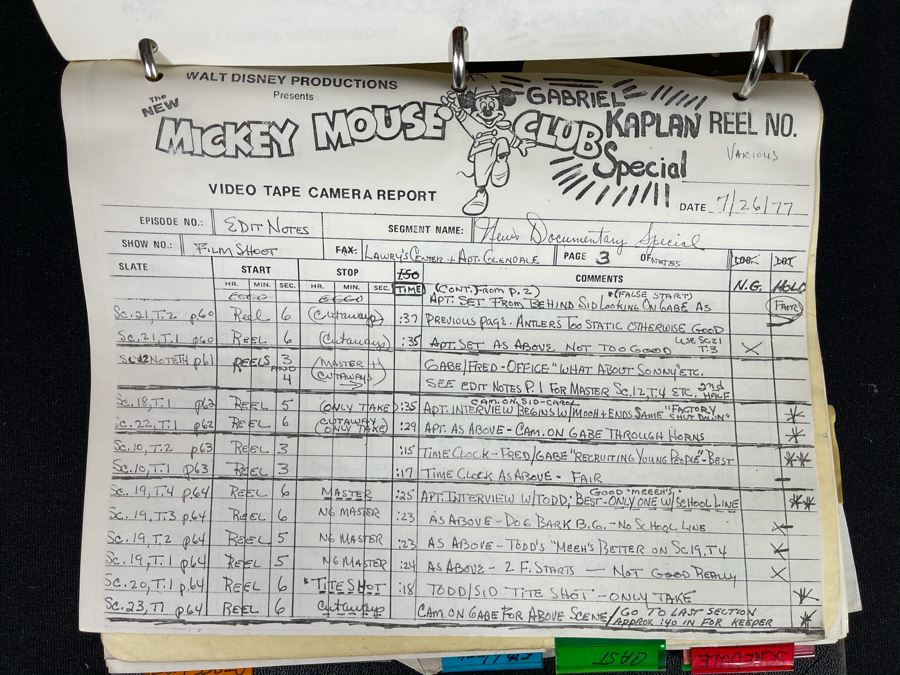 WALT DISNEY PRODUCTIONS
Presents
The NEW MICKEY MOUSE CLUB
GABRIEL KAPLAN Special
REEL NO.
VARIOUS
VIDEO TAPE CAMERA REPORT
DATE 7/26/77
EPISODE NO.: EDIT NOTES SEGMENT NAME: News Documentary Special
SHOW NO.: FILM SHOOT FAX: LAWRY'S CENTER + APT. GLENDALE PAGE 3 OF NOTES
SLATE START STOP ISO TIME COMMENTS N.G. HOLD
HR. MIN. SEC. HR. MIN. SEC. (CONT. FROM P. 2) *(FALSE START)
APT. SET FROM BEHIND SID LOOKING ON GABE AS FAIR
Sc. 21, T. 2 p60 Reel 6 (Cutaways) :37 PREVIOUS PAGE. ANTLERS TOO STATIC OTHERWISE GOOD
Sc. 21, T. 1 p60 REEL 6 (Cutaways) :35 APT. SET AS ABOVE NOT TOO GOOD USE SC 21 T. 3 X
SC 12 NOTETH p61 REELS 3 AND 4 (MASTER + CUTAWAYS) GABE/FRED-OFFICE "WHAT ABOUT SONNY" ETC.
SEE EDIT NOTES P. 1 FOR MASTER SC. 12, T. 4 ETC. 2nd HALF
Sc. 18, T. 1 p62 REEL 5 (ONLY TAKE) :35 CAM. ON SID-CAROL APT. INTERVIEW BEGINS W/MOOH + ENDS SAME "FACTORY SHUT DOWN" *
Sc. 22, T. 1 p62 REEL 6 (CUTAWAY ONLY TAKE) :29 APT. AS ABOVE - CAM. ON GABE THROUGH HORNS *
Sc. 10, T. 2 p63 REEL 3 :15 TIME CLOCK - FRED/GABE "RECRUITING YOUNG PEOPLE" - BEST **
Sc. 10, T. 1 p63 REEL 3 :17 TIME CLOCK AS ABOVE - FAIR —
Sc. 19, T. 4 p.64 REEL 6 MASTER :25 APT. INTERVIEW W/TODD; GOOD "MEEEH'S"; BEST - ONLY ONE W/SCHOOL LINE **
Sc. 19, T. 3 p.64 REEL 6 NG MASTER :23 AS ABOVE - DOG BARK B.G. - NO SCHOOL LINE X
Sc. 19, T. 2 p.64 REEL 5 NG MASTER :23 AS ABOVE - TODD'S "MEEH'S BETTER ON SC 19, T. 4 X
Sc. 19, T. 1 p.64 REEL 5 NG MASTER :24 AS ABOVE - 2 F. STARTS — NOT GOOD REALLY X
Sc. 20, T. 1 p.64 REEL 6 "TITE SHOT" :18 TODD/SID "TITE SHOT" - ONLY TAKE *
Sc. 23, T1 p64 REEL 6 Cutaways CAM ON GABE FOR ABOVE SCENE/GO TO LAST SECTION APPROX :40 IN FOR KEEPER *
CAST
SCHEDULE